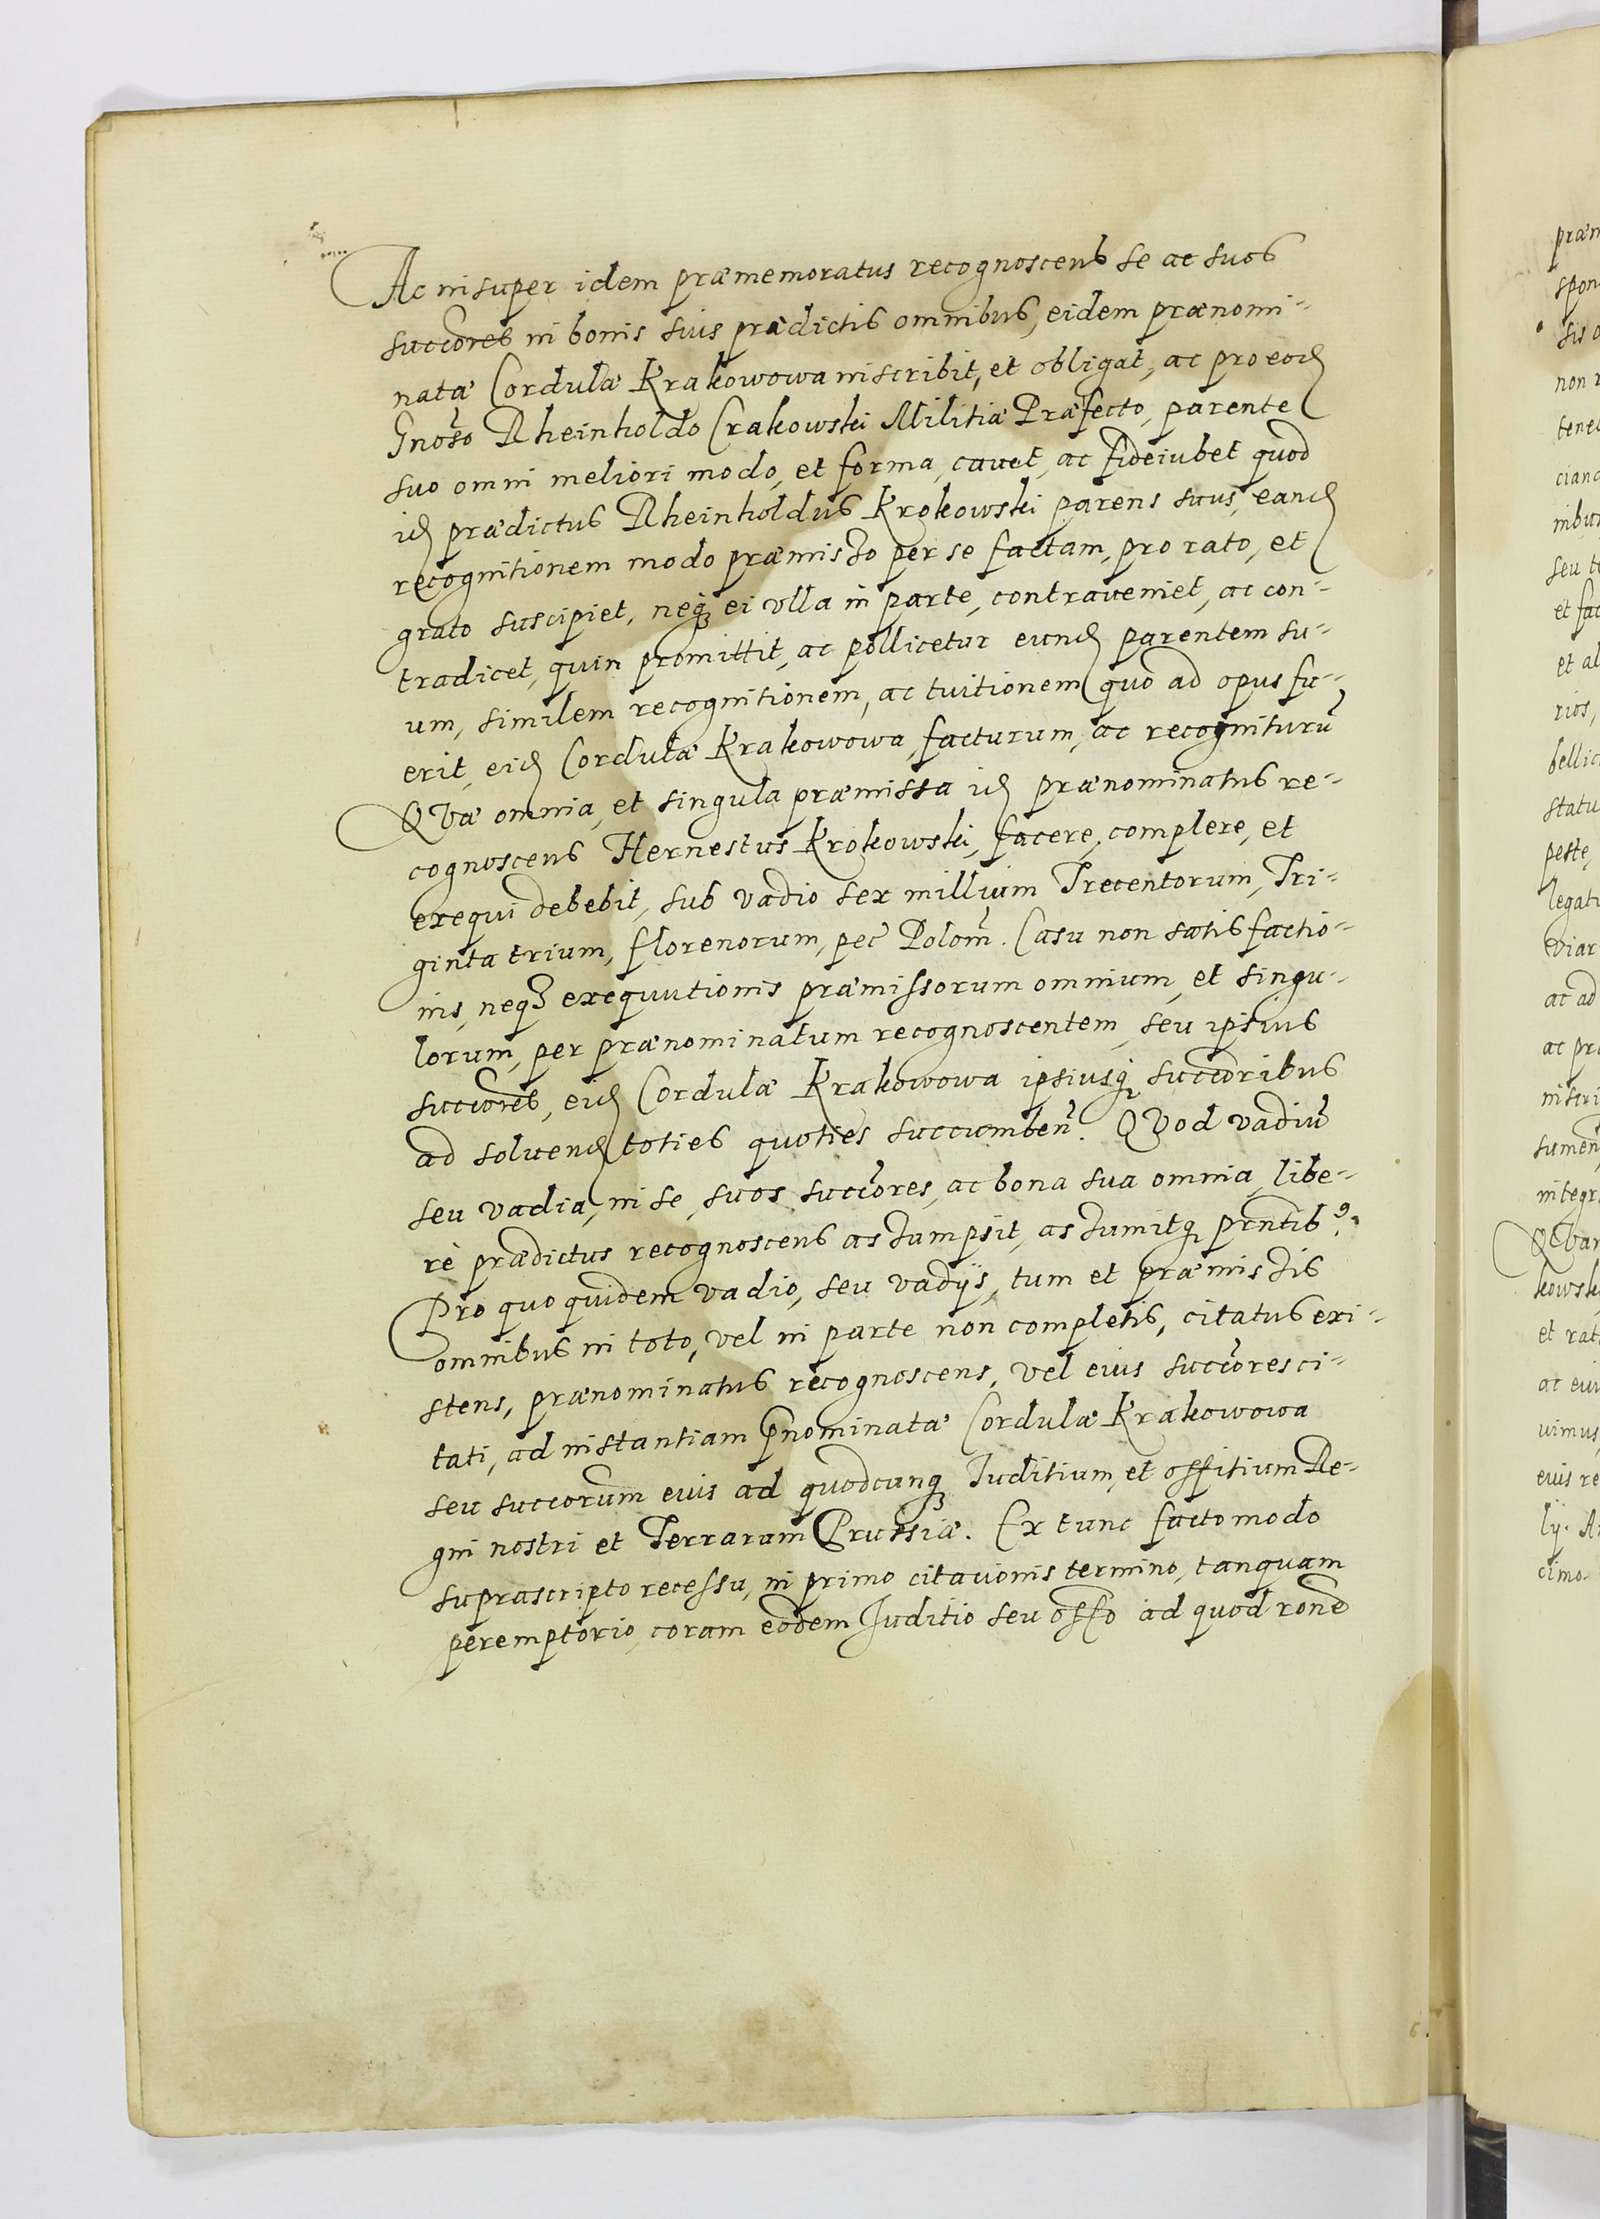 Ac insuper idem præmemoratus recognoscens se ac suos
succores in bonis suis prædictis omnibus, eidem prænomi-
natæ Cordulæ Krakowowa inscribit, et obligat, ac pro eod
Gnoso Rheinholdo Crakowski Militiæ Præfecto, parente
suo omni meliori modo, et forma, cavet, ac fideiubet quod
id prædictus Rheinholdus Krokowski parens suus, eand
recognitionem modo præmisso per se factam, pro rato, et
grato suscipiet, neq ei ulla in parte, contraveniet, ac con-
tradicet, quin promittit, ac pollicetur eund parentem su-
um, similem recognitionem, ac tuitionem quo ad opus fu-
erit, eid Cordulæ Krakowowa, facturum, ac recogniturū
QVæ omnia, et singula præmissa id prænominatus re-
cognoscens Hernestus Krokowski, facere, complere, et
exequi debebit, sub vadio sex millium Trecentorum, Tri-
ginta trium, florenorum, pec Polom. Casu non satisfactio-
nis, neq exequutionis præmissorum omnium, et singu-
lorum, per prænominatum recognoscentem, seu ipsius
succores, eid Cordulæ Krakowowa ipsiusq succoribus
ad soluend toties quoties succumben. QVod vadiū
seu vadia, in se, suos succores, ac bona sua omnia, libe-
rè prædictus recognoscens assumpsit, assumitq pntib9.
Pro quo quidem vadio, seu vadijs, tum et præmissis
omnibus in toto, vel in parte non completis, citatus exi-
stens, prænominatus recognoscens, vel eius succores ci-
tati, ad instantiam pnominatæ Cordulæ Krakowowa
seu succorum eius ad quodcunq Iuditium, et offitium Re-
gni nostri et Terrarum Prussiæ. Ex tunc facto modo
suprascripto recessu, in primo citationis termino, tanquam
peremptorio, coram eodem Iuditio seu offo ad quod rone
præm
spon
sis o
non
tene
cian
nibus
seu t
et fac
et al
rios,
bellic
statu
peste,
legati
viar
ac ad
ac pr
inscri
sumen
integr
QVar
kowski
et rat
ac eui
uimus,
eius re
lij. A
cimo